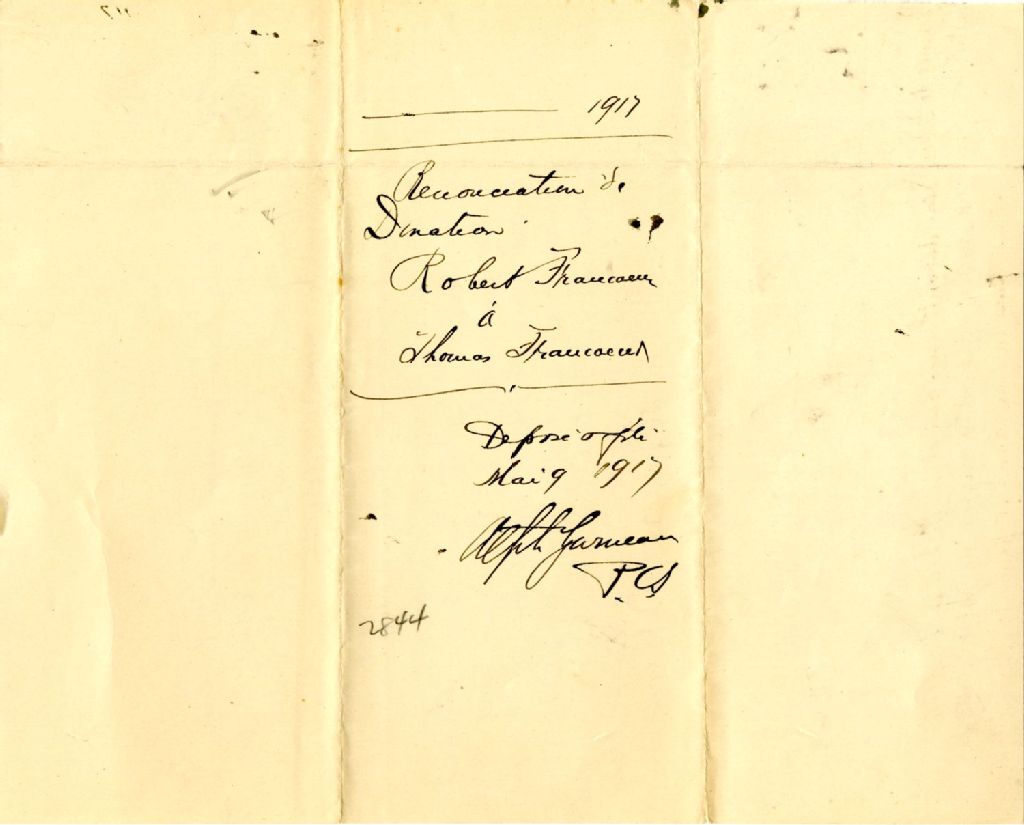 1917
Renonciation de
Donation
Robert Francoeur
à
Thomas Francoeur
Deposé
Mai 9 1917
Alph Garneau
P.
2844